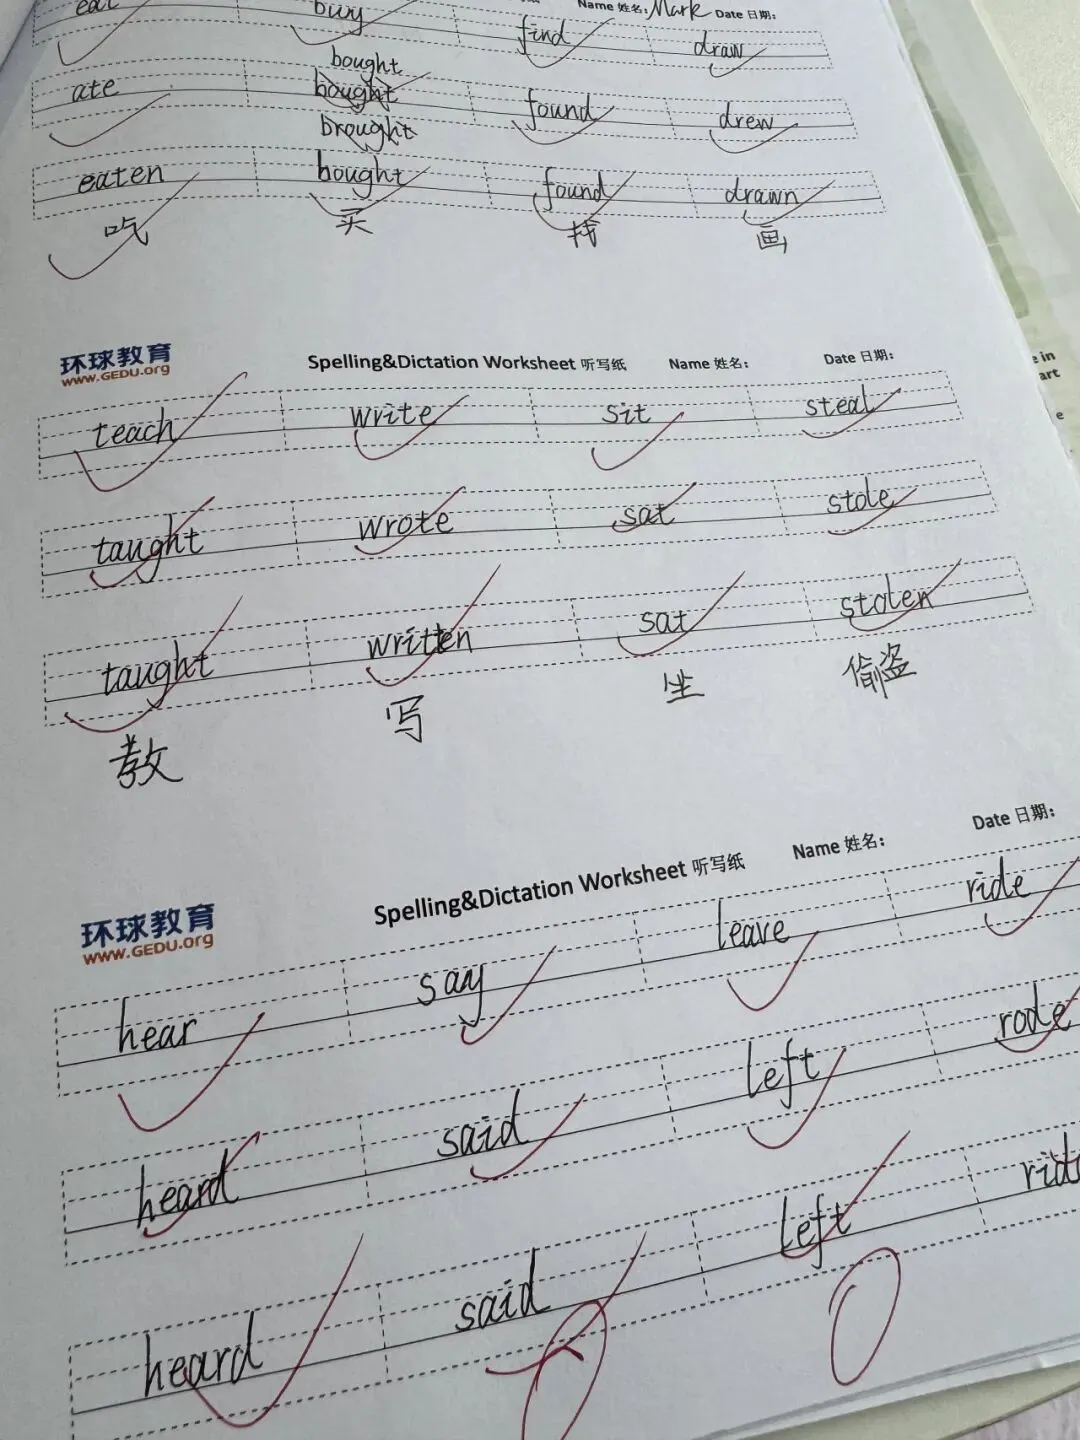 eat buy find draw
Name 姓名: Mark Date 日期:
bought
ate bought found drew
brought
eaten bought found drawn
吃 买 找 画
环球教育
www.GEDU.org
Spelling&Dictation Worksheet 听写纸 Name 姓名: Date 日期:
teach write sit steal
taught wrote sat stole
taught written sat stolen
教 写 坐 偷盗
环球教育
www.GEDU.org
Spelling&Dictation Worksheet 听写纸 Name 姓名: Date 日期:
hear say leave ride
heard said left rode
heard said left
e in
art
e